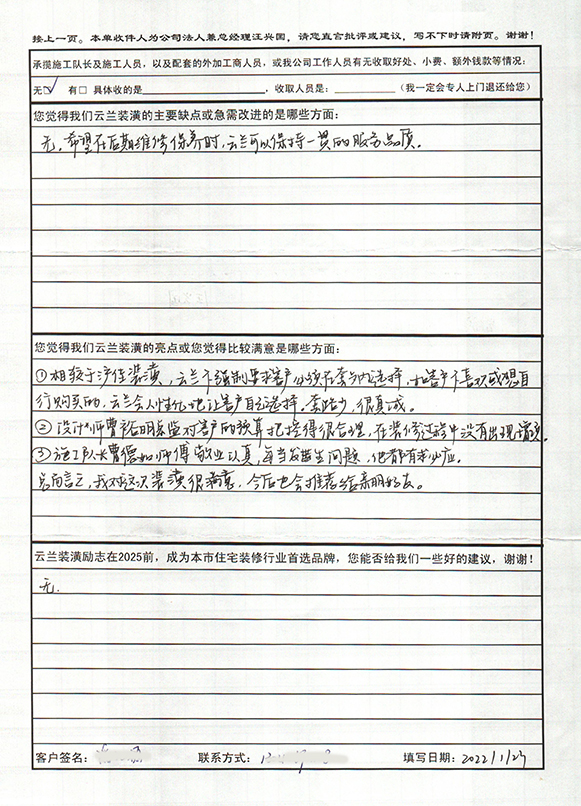 接上一页。本单收件人为公司法人兼总经理汪兴国，请您直言批评或建议，写不下时请附页。谢谢！
承揽施工队长及施工人员，以及配套的外加工商人员，或我公司工作人员有无收取好处、小费、额外钱款等情况：
无☑ 有□ 具体收的是 ，收取人是： （我一定会专人上门退还给您）
您觉得我们云兰装潢的主要缺点或急需改进的是哪些方面：
无。希望在后期维修保养时，云兰可以保持一贯的服务品质。
您觉得我们云兰装潢的亮点或您觉得比较满意是哪些方面：
①相较于沪佳装潢，云兰不强制要求客户必须在套内选择，如客户不喜欢或想自
行购买的，云兰会人性化地让客户自己选择，套路少，很真诚。
②设计师曹裕明总监对客户的预算把控得很合理，在装修过程中没有出现增项。
③施工队长曹德如师傅敬业认真，每当发生问题，他都有求必应。
总而言之，我对这次装潢很满意，今后也会推荐给亲朋好友。
云兰装潢励志在2025前，成为本市住宅装修行业首选品牌，您能否给我们一些好的建议，谢谢！
无.
客户签名： 联系方式： 填写日期：2022/1/27